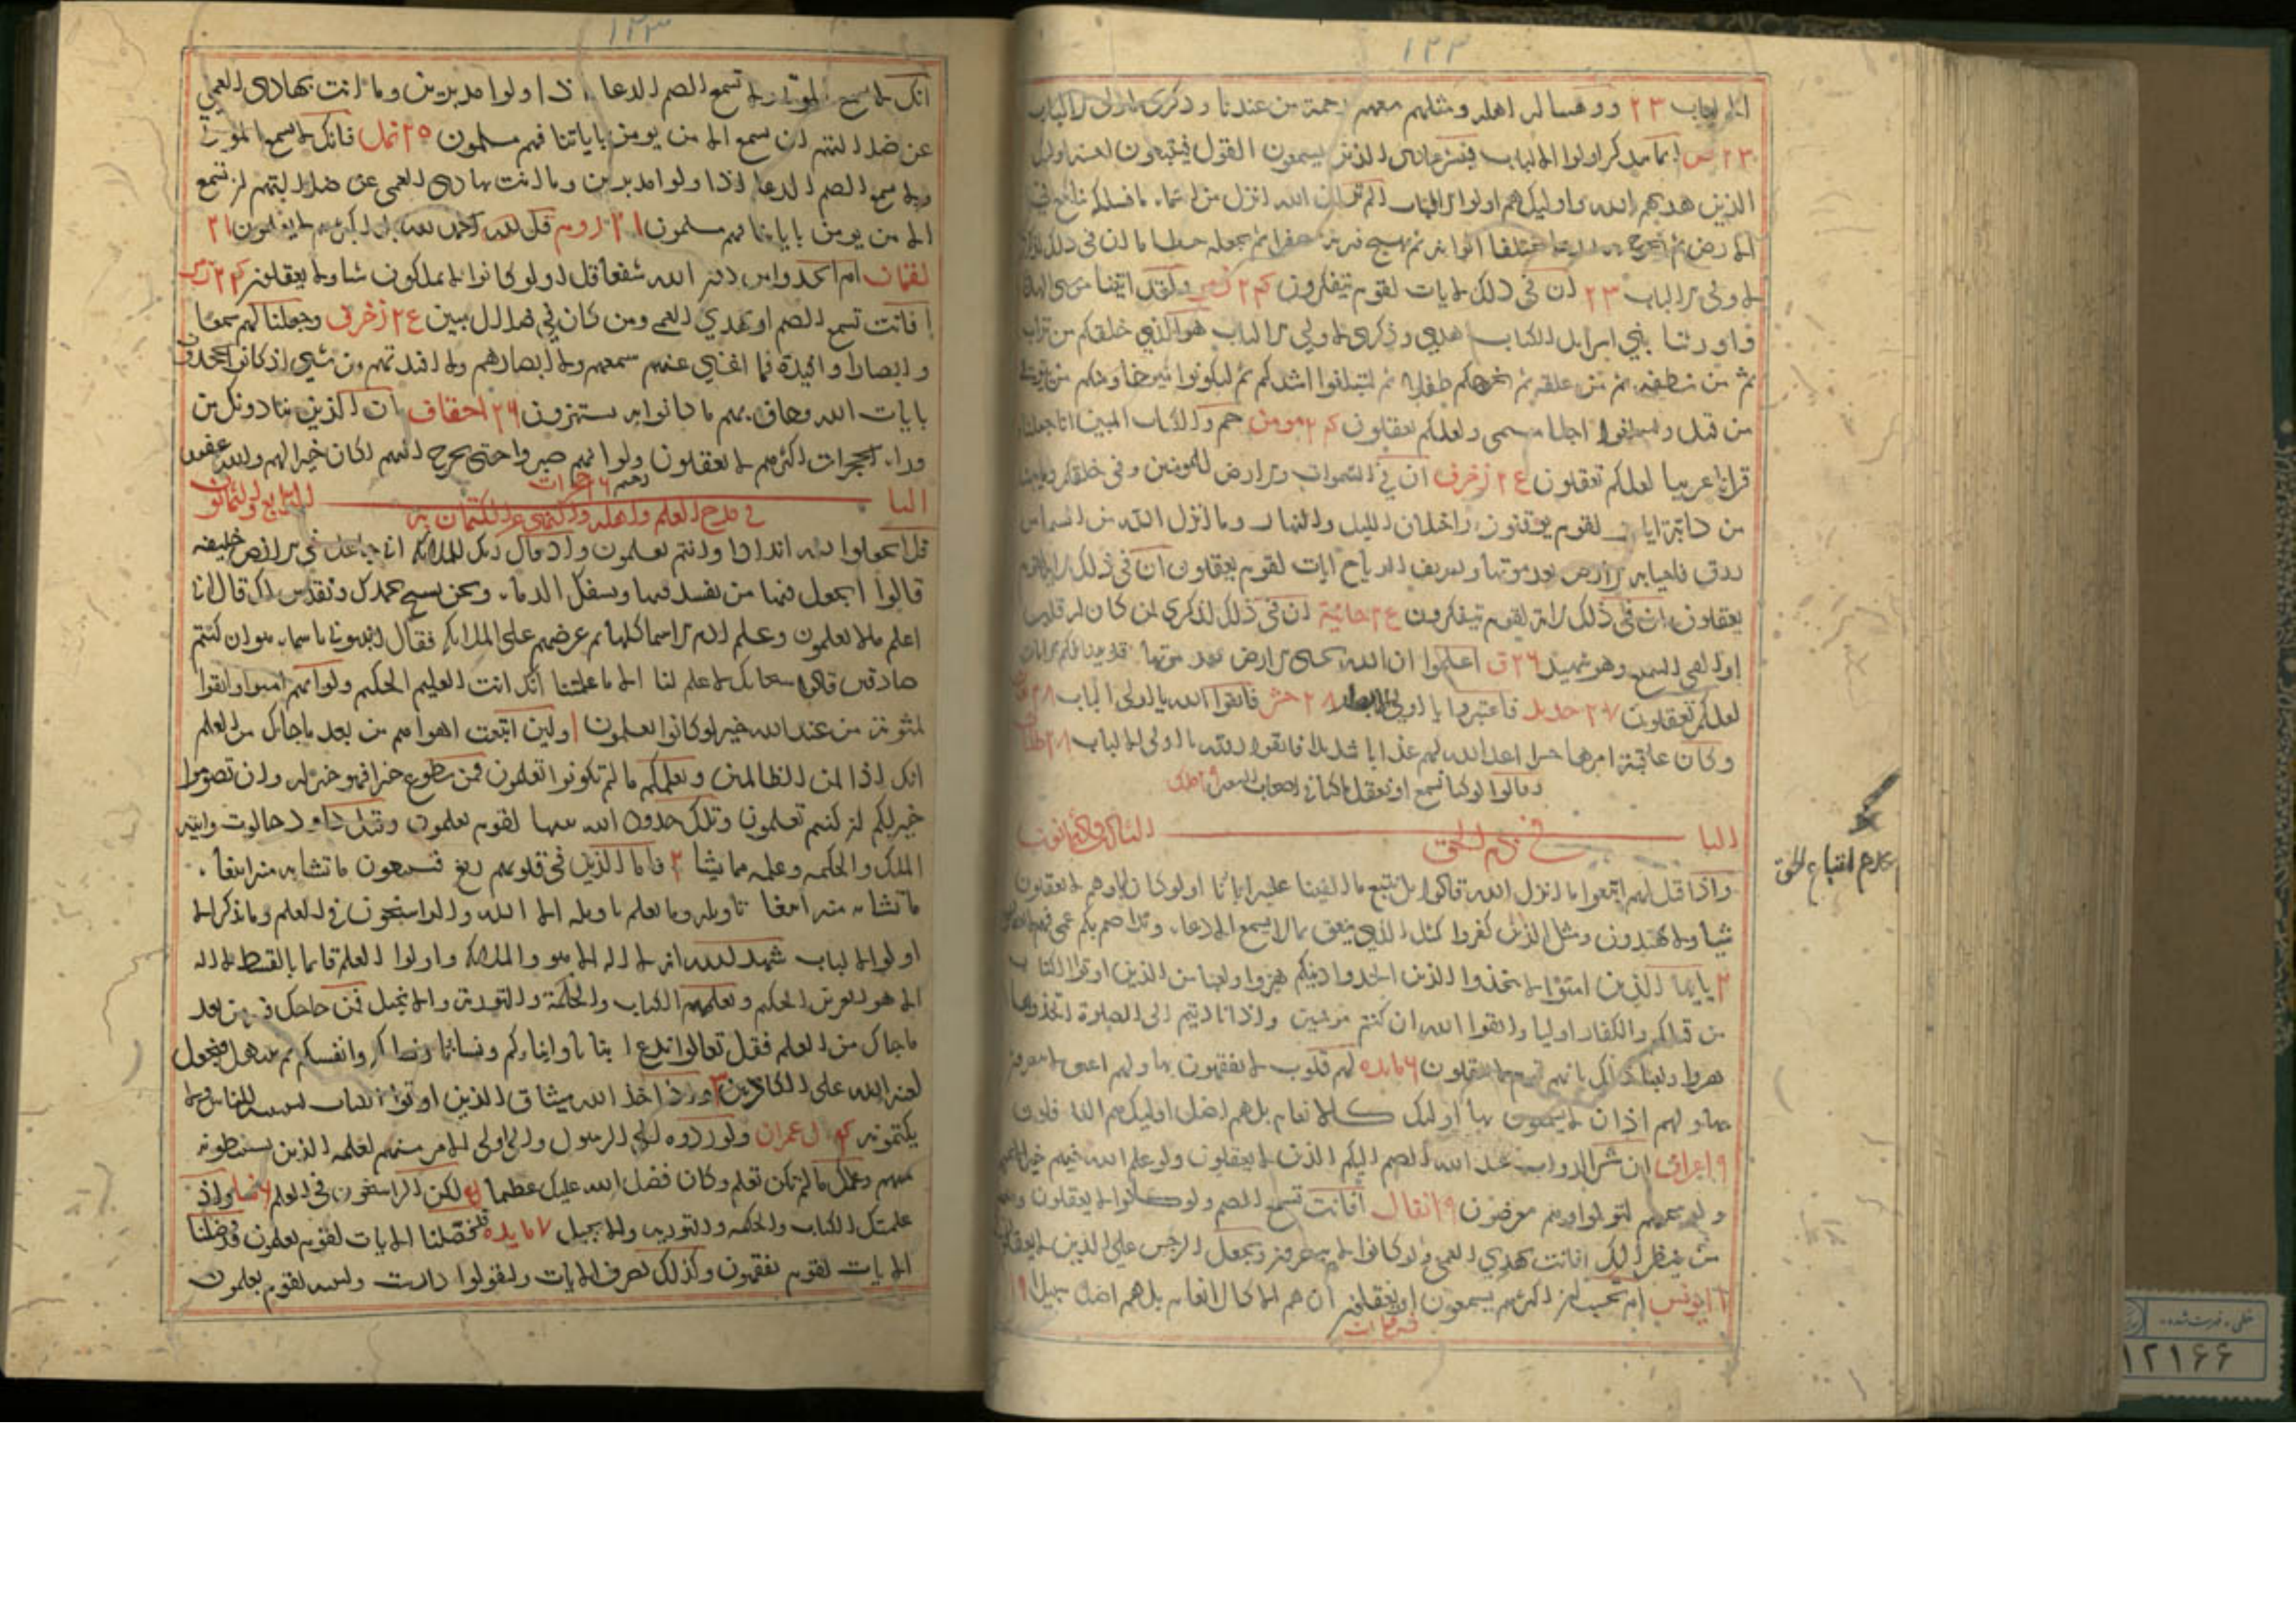 ١٢٢
٢٣ ووهبنا له اهله ومثلهم معهم رحمة من عندنا وذكرى لاولى الالباب
٢٣ ص انما يتذكر اولوا الالباب فبشر عبادى الذين يسمعون القول فيتبعون احسنه اوليك
الذين هديهم الله واوليك هم اولوا الالباب الم تر ان الله انزل من السماء ما فسلكه ينابيع فى
الارض ثم يخرج به زرعا مختلفا الوانه ثم يهيج فتريه مصفرا ثم يجعله حطاما ان فى ذلك لذكرى
لاولى الالباب ٢٣ ان فى ذلك لايات لقوم يتفكرون ولقد اتينا موسى الهدى
واورثنا بنى اسرايل الكتاب هدى وذكرى لاولى الالباب هو الذي خلقكم من تراب
ثم من نطفه ثم من علقه ثم يخرجكم طفلا ثم لتبلغوا اشدكم ثم لتكونوا شيوخا ومنكم من يتوفى
من قبل ولتبلغوا اجلا مسمى ولعلكم تعقلون مومن حم والكتاب المبين انا جعلناه
قرانا عربيا لعلكم تعقلون زخرف ان في السموات والارض للمومنين وفى خلقكم وما يبث
من دابة ايات لقوم يوقنون واختلاف الليل والنهار وما انزل الله من السماء من
رزق فاحيا به الارض بعد موتها وتصريف الرياح ايات لقوم يعقلون ان فى ذلك لاية لقوم
يعقلون ان فى ذلك لاية لقوم يتفكرون جاثية ان فى ذلك لذكرى لمن كان له قلب
او القى السمع وهو شهيد ٢٦ ق اعلموا ان الله يحيى الارض بعد موتها قد بينا لكم الايات
لعلكم تعقلون ٢٧ حديد فاعتبروا يا اولى الابصار ٢٨ حشر فاتقوا الله يا اولى الالباب
وكان عاقبة امرها خسرا اعد الله لهم عذابا شديدا فاتقوا الله يا اولى الالباب ٢٨ طلاق
وقالوا لو كنا نسمع او نعقل ما كنا فى اصحاب السعير
البا
الثالث والثمانون
عدم اتباع الحق
واذا قيل لهم اتبعوا ما انزل الله قالوا بل نتبع ما الفينا عليه اباءنا اولو كان اباوهم لا يعقلون
شيا ولا يهتدون ومثل الذين كفروا كمثل الذي ينعق بما لا يسمع الا دعاء ونداء صم بكم عمى فهم لا يعقلون
٢ يايها الذين امنوا لا تتخذوا الذين اتخذوا دينكم هزوا ولعبا من الذين اوتوا الكتاب
من قبلكم والكفار اوليا واتقوا الله ان كنتم مومنين واذا ناديتم الى الصلوة اتخذوها
هزوا ولعبا ذلك بانهم قوم لا يعقلون ٦ مايده لهم قلوب لا يفقهون بها ولهم اعين لا يبصرون
بها ولهم اذان لا يسمعون بها اوليك كالانعام بل هم اضل اوليك هم الغافلون
٩ اعراف ان شر الدواب عند الله الصم البكم الذين لا يعقلون ولو علم الله فيهم خيرا لاسمعهم
ولو اسمعهم لتولوا وهم معرضون ٩ انفال افانت تسمع الصم ولو كانوا لا يعقلون ومنهم
من ينظر اليك افانت تهدي العمى ولو كانوا لا يبصرون ويجعل الرجس على الذين لا يعقلون
١١ يونس ام تحسب ان اكثرهم يسمعون او يعقلون ان هم الا كالانعام بل هم اضل سبيلا ١٩
فرقان
١٢٣
انك لا تسمع الموتى ولا تسمع الصم الدعا اذا ولوا مدبرين وما انت بهادى العمى
عن ضلالتهم ان تسمع الا من يومن باياتنا فهم مسلمون ٢٥ نمل فانك لا تسمع الموتى
ولا تسمع الصم الدعا اذا ولوا مدبرين وما انت بهادى العمى عن ضلالتهم ان تسمع
الا من يومن باياتنا فهم مسلمون ٢١ روم قل الحمد لله بل اكثرهم لا يعلمون ٢١
لقمان ام اتخذوا من دون الله شفعا قل اولو كانوا لا يملكون شيا ولا يعقلون
افانت تسمع الصم او تهدي العمى ومن كان في ضلال مبين زخرف وجعلنا لهم سمعا
وابصارا وافئدة فما اغنى عنهم سمعهم ولا ابصارهم ولا افئدتهم من شيى اذ كانوا يجحدون
بايات الله وحاق بهم ما كانوا به يستهزون ٢٦ احقاف ان الذين ينادونك من
وراء الحجرات اكثرهم لا يعقلون ولو انهم صبروا حتى تخرج اليهم لكان خيرا لهم والله غفور
رحيم ٢٦ حجرات
البا
السابع والثمانون
في مدح العلم واهله والنهي عن الكتمان به
فلا تجعلوا لله اندادا وانتم تعلمون واذ قال ربك للملائكة انى جاعل فى الارض خليفه
قالوا اتجعل فيها من يفسد فيها ويسفك الدماء ونحن نسبح بحمدك ونقدس لك قال انى
اعلم ما لا تعلمون وعلم ادم الاسما كلها ثم عرضهم على الملائكة فقال انبئونى باسماء هولاء ان كنتم
صادقين قالوا سبحانك لا علم لنا الا ما علمتنا انك انت العليم الحكيم ولو انهم امنوا واتقوا
لمثوبة من عند الله خير لو كانوا يعلمون ولين اتبعت اهواءهم من بعد ما جاءك من العلم
انك اذا لمن الظالمين ويعلمكم ما لم تكونوا تعلمون فمن تطوع خيرا فهو خير له وان تصوموا
خير لكم ان كنتم تعلمون وتلك حدود الله يبينها لقوم يعلمون وقتل داود جالوت واتيه
الملك والحكمه وعلمه مما يشا ٢ فاما الذين فى قلوبهم زيغ فيتبعون ما تشابه منه ابتغاء
ما تشابه منه ابتغا تاويله وما يعلم تاويله الا الله والراسخون فى العلم وما يذكر الا
اولوا الالباب شهد الله انه لا اله الا هو والملائكة واولوا العلم قايما بالقسط لا اله
الا هو العزيز الحكيم ويعلمهم الكتاب والحكمة والتورية والانجيل فمن حاجك فيه من بعد
ما جاك من العلم فقل تعالوا ندع ابناءنا وابناءكم ونساءنا ونساءكم وانفسنا وانفسكم ثم نبتهل فنجعل
لعنة الله على الكاذبين ٣ واذ اخذ الله ميثاق الذين اوتوا الكتاب لتبيننه للناس ولا
يكتمونه ال عمران ولو ردوه الى الرسول والى اولى الامر منهم لعلمه الذين يستنبطونه
منهم وعلمك ما لم تكن تعلم وكان فضل الله عليك عظيما لكن الراسخون فى العلم ٦ نسا واذ
علمتك الكتاب والحكمه والتورية والانجيل ٧ مايده قد فصلنا الايات لقوم يعلمون قد فصلنا
الايات لقوم يفقهون وكذلك نصرف الايات وليقولوا درست ولنبينه لقوم يعلمون
١٢١٦٦